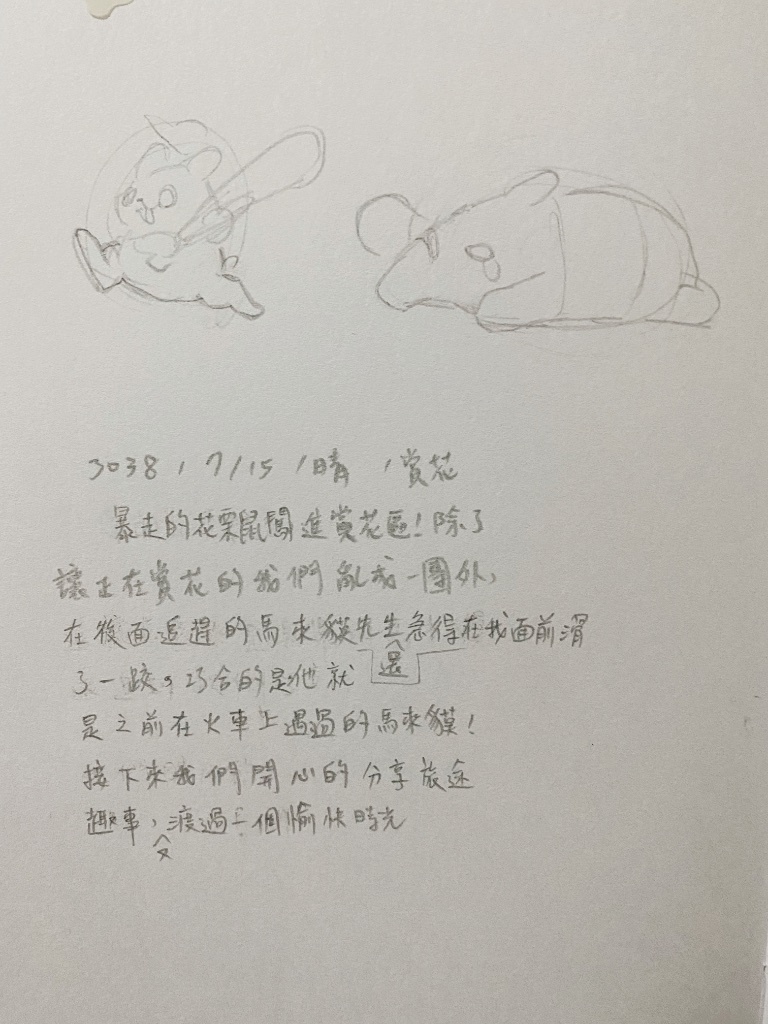 3038,7/15,晴,賞花
暴走的花栗鼠闖進賞花區!除了
讓正在賞花的我們亂成一團外,
在後面追趕的馬來貘先生還急得在我面前滑
了一跤。巧合的是他就
是之前在火車上遇過的馬來貘!
接下來我們開心的分享旅途
趣事,又渡過一個愉快時光